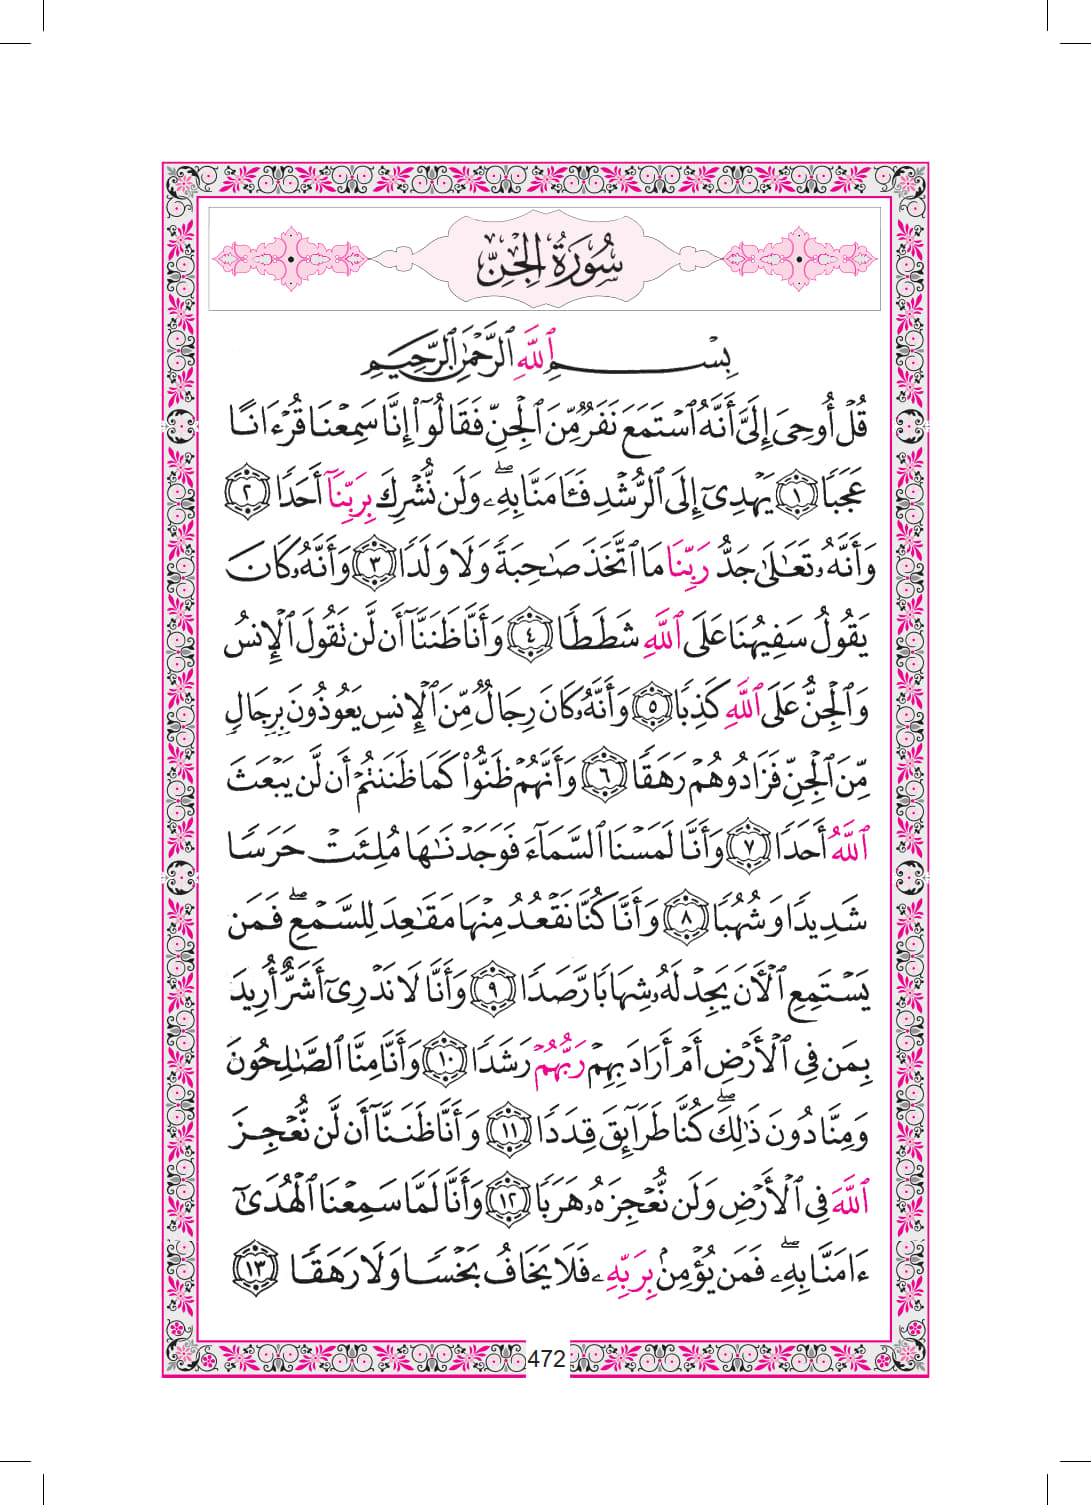 سُورَةُ الجِنِّ
بِسْمِ ٱللَّهِ ٱلرَّحْمَٰنِ ٱلرَّحِيمِ
قُلْ أُوحِىَ إِلَىَّ أَنَّهُ ٱسْتَمَعَ نَفَرٌ مِّنَ ٱلْجِنِّ فَقَالُوٓا۟ إِنَّا سَمِعْنَا قُرْءَانًا
عَجَبًا ١ يَهْدِىٓ إِلَى ٱلرُّشْدِ فَـَٔامَنَّا بِهِۦ ۖ وَلَن نُّشْرِكَ بِرَبِّنَآ أَحَدًا ٢
وَأَنَّهُۥ تَعَٰلَىٰ جَدُّ رَبِّنَا مَا ٱتَّخَذَ صَٰحِبَةً وَلَا وَلَدًا ٣ وَأَنَّهُۥ كَانَ
يَقُولُ سَفِيهُنَا عَلَى ٱللَّهِ شَطَطًا ٤ وَأَنَّا ظَنَنَّآ أَن لَّن تَقُولَ ٱلْإِنسُ
وَٱلْجِنُّ عَلَى ٱللَّهِ كَذِبًا ٥ وَأَنَّهُۥ كَانَ رِجَالٌ مِّنَ ٱلْإِنسِ يَعُوذُونَ بِرِجَالٍ
مِّنَ ٱلْجِنِّ فَزَادُوهُمْ رَهَقًا ٦ وَأَنَّهُمْ ظَنُّوا۟ كَمَا ظَنَنتُمْ أَن لَّن يَبْعَثَ
ٱللَّهُ أَحَدًا ٧ وَأَنَّا لَمَسْنَا ٱلسَّمَآءَ فَوَجَدْنَٰهَا مُلِئَتْ حَرَسًا
شَدِيدًا وَشُهُبًا ٨ وَأَنَّا كُنَّا نَقْعُدُ مِنْهَا مَقَٰعِدَ لِلسَّمْعِ ۖ فَمَن
يَسْتَمِعِ ٱلْـَٔانَ يَجِدْ لَهُۥ شِهَابًا رَّصَدًا ٩ وَأَنَّا لَا نَدْرِىٓ أَشَرٌّ أُرِيدَ
بِمَن فِى ٱلْأَرْضِ أَمْ أَرَادَ بِهِمْ رَبُّهُمْ رَشَدًا ١٠ وَأَنَّا مِنَّا ٱلصَّٰلِحُونَ
وَمِنَّا دُونَ ذَٰلِكَ ۖ كُنَّا طَرَآئِقَ قِدَدًا ١١ وَأَنَّا ظَنَنَّآ أَن لَّن نُّعْجِزَ
ٱللَّهَ فِى ٱلْأَرْضِ وَلَن نُّعْجِزَهُۥ هَرَبًا ١٢ وَأَنَّا لَمَّا سَمِعْنَا ٱلْهُدَىٰٓ
ءَامَنَّا بِهِۦ ۖ فَمَن يُؤْمِنۢ بِرَبِّهِۦ فَلَا يَخَافُ بَخْسًا وَلَا رَهَقًا ١٣
472